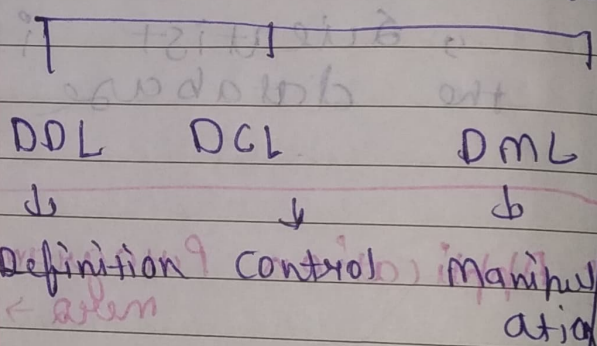 DDL DCL DML
Definition Control Manipul
ation